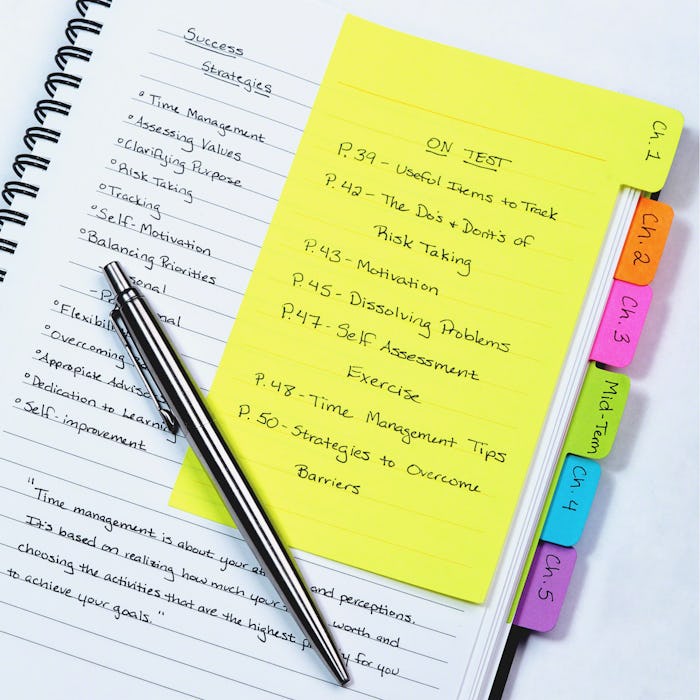 Success
Strategies
° Time Management
° Assessing Values
° Clarifying Purpose
° Risk Taking
° Tracking
° Self-Motivation
° Balancing Priorities
° Overcoming
° Dedication to Learning
° Self-improvement
"Time management is about your and perceptions.
It's based on realizing how much your worth and
choosing the activities that are the highest for you
to achieve your goals."
ON TEST
P. 39 - Useful Items to Track
P. 42 - The Do's & Dont's of
Risk Taking
P. 43 - Motivation
P. 45 - Dissolving Problems
P. 47 - Self Assessment
Exercise
P. 48 - Time Management Tips
P. 50 - Strategies to Overcome
Barriers
Ch. 1
Ch. 2
Ch. 3
Mid-Term
Ch. 4
Ch. 5